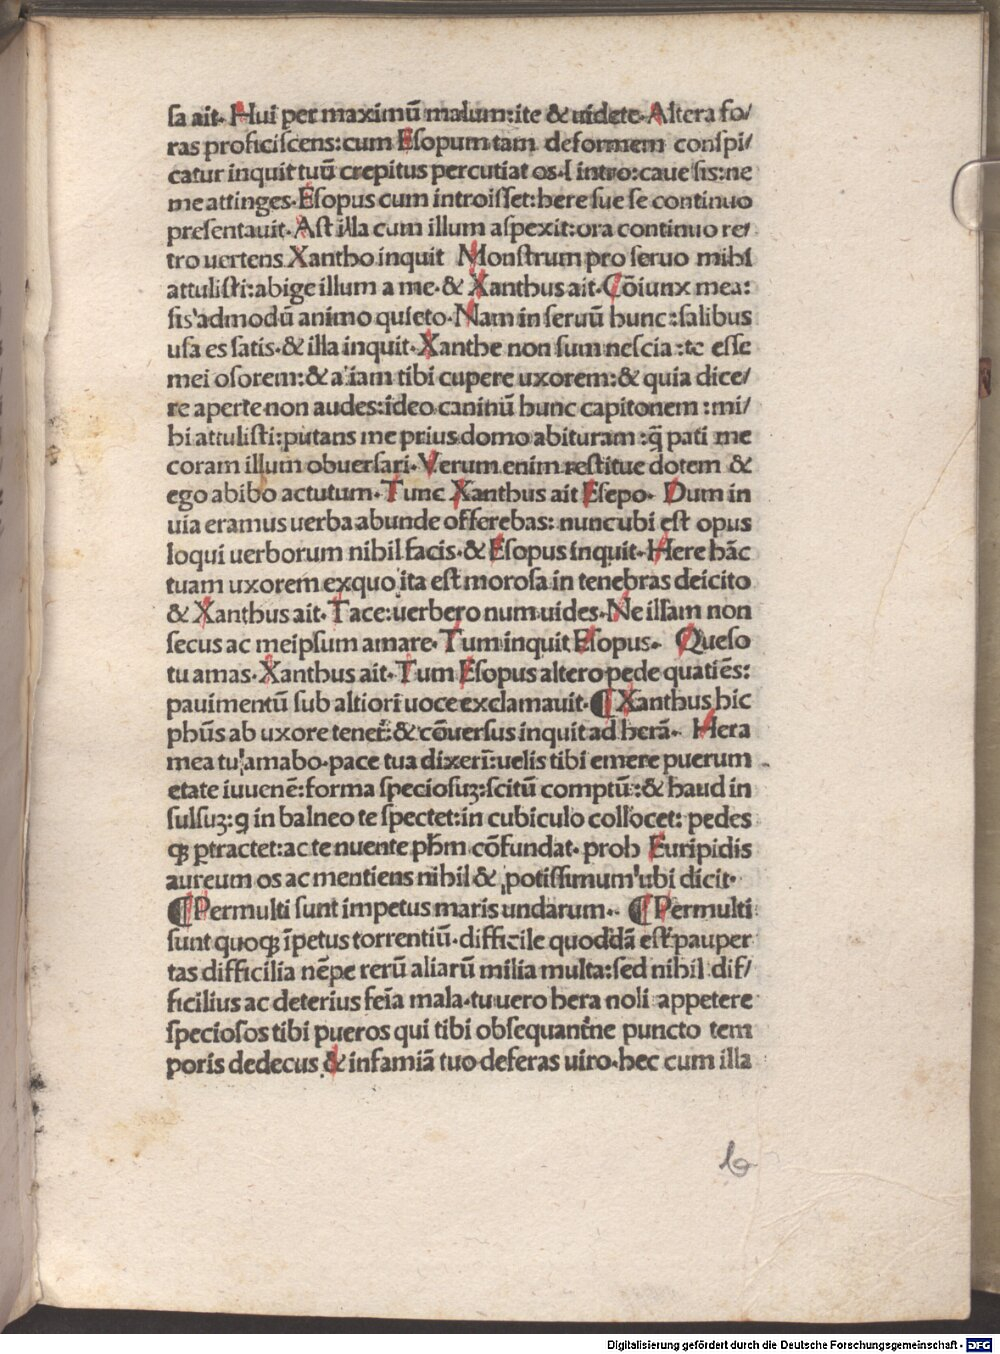 sa ait. Hui per maximū malum:ite & uidete. Altera fo/
ras proficiscens:cum Esopum tam deformem conspi/
catur inquit tuū crepitus percutiat os.I intro:caue sis:ne
me attinges.Esopus cum introisset:here sue se continuo
presentauit.Ast illa cum illum aspexit:ora continuo re/
tro uertens Xantho inquit Monstrum pro seruo mihi
attulisti:abige illum a me.& Xanthus ait.Cōiunx mea:
sis admodū animo quieto.Nam in seruū hunc:salibus
usa es satis.& illa inquit.Xanthe non sum nescia:te esse
mei osorem:& aliam tibi cupere uxorem:& quia dice/
re aperte non audes:ideo caninū hunc capitonem:mi/
hi attulisti:putans me prius domo abituram:q̄ pati me
coram illum obuersari.Verum enim restitue dotem &
ego abibo actutum.Tunc Xanthus ait Esepo. Dum in
uia eramus uerba abunde offerebas: nunc ubi est opus
loqui uerborum nihil facis.& Esopus inquit.Here hāc
tuam uxorem exquo ita est morosa in tenebras deicito
& Xanthus ait.Tace:uerbero num uides.Ne illam non
secus ac meipsum amare.Tum inquit Esopus. Queso
tu amas.Xanthus ait.Tum Esopus altero pede quatiēs:
pauimentū sub altiori uoce exclamauit.¶ Xanthus hic
phūs ab uxore tenet̄:& cōuersus inquit ad herā. Hera
mea tu amabo.pace tua dixerī:uelis tibi emere puerum
etate iuuenē:forma speciosuꝫ:scitū comptū:& haud in
sulsuꝫ:ꝯ in balneo te spectet:in cubiculo collocet: pedes
qꝫ ꝑtractet:ac te nuente phm̄ cōfundat.proh Euripidis
aureum os ac mentiens nihil & potissimum ubi dicit.
¶Permulti sunt impetus maris undarum. ¶Permulti
sunt quoqꝫ īpetus torrentiū.difficile quoddā est pauper
tas difficilia nēpe rerū aliarū milia multa:sed nihil dif/
ficilius ac deterius feīa mala.tu uero hera noli appetere
speciosos tibi pueros qui tibi obsequant̄ne puncto tem
poris dedecus & infamiā tuo deferas uiro.hec cum illa
b
Digitalisierung gefördert durch die Deutsche Forschungsgemeinschaft - DFG